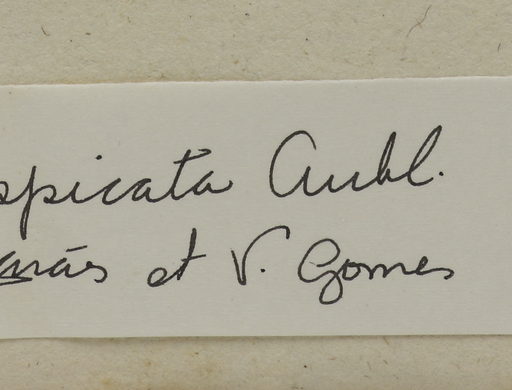 spicata Aubl.
et V. Gomes